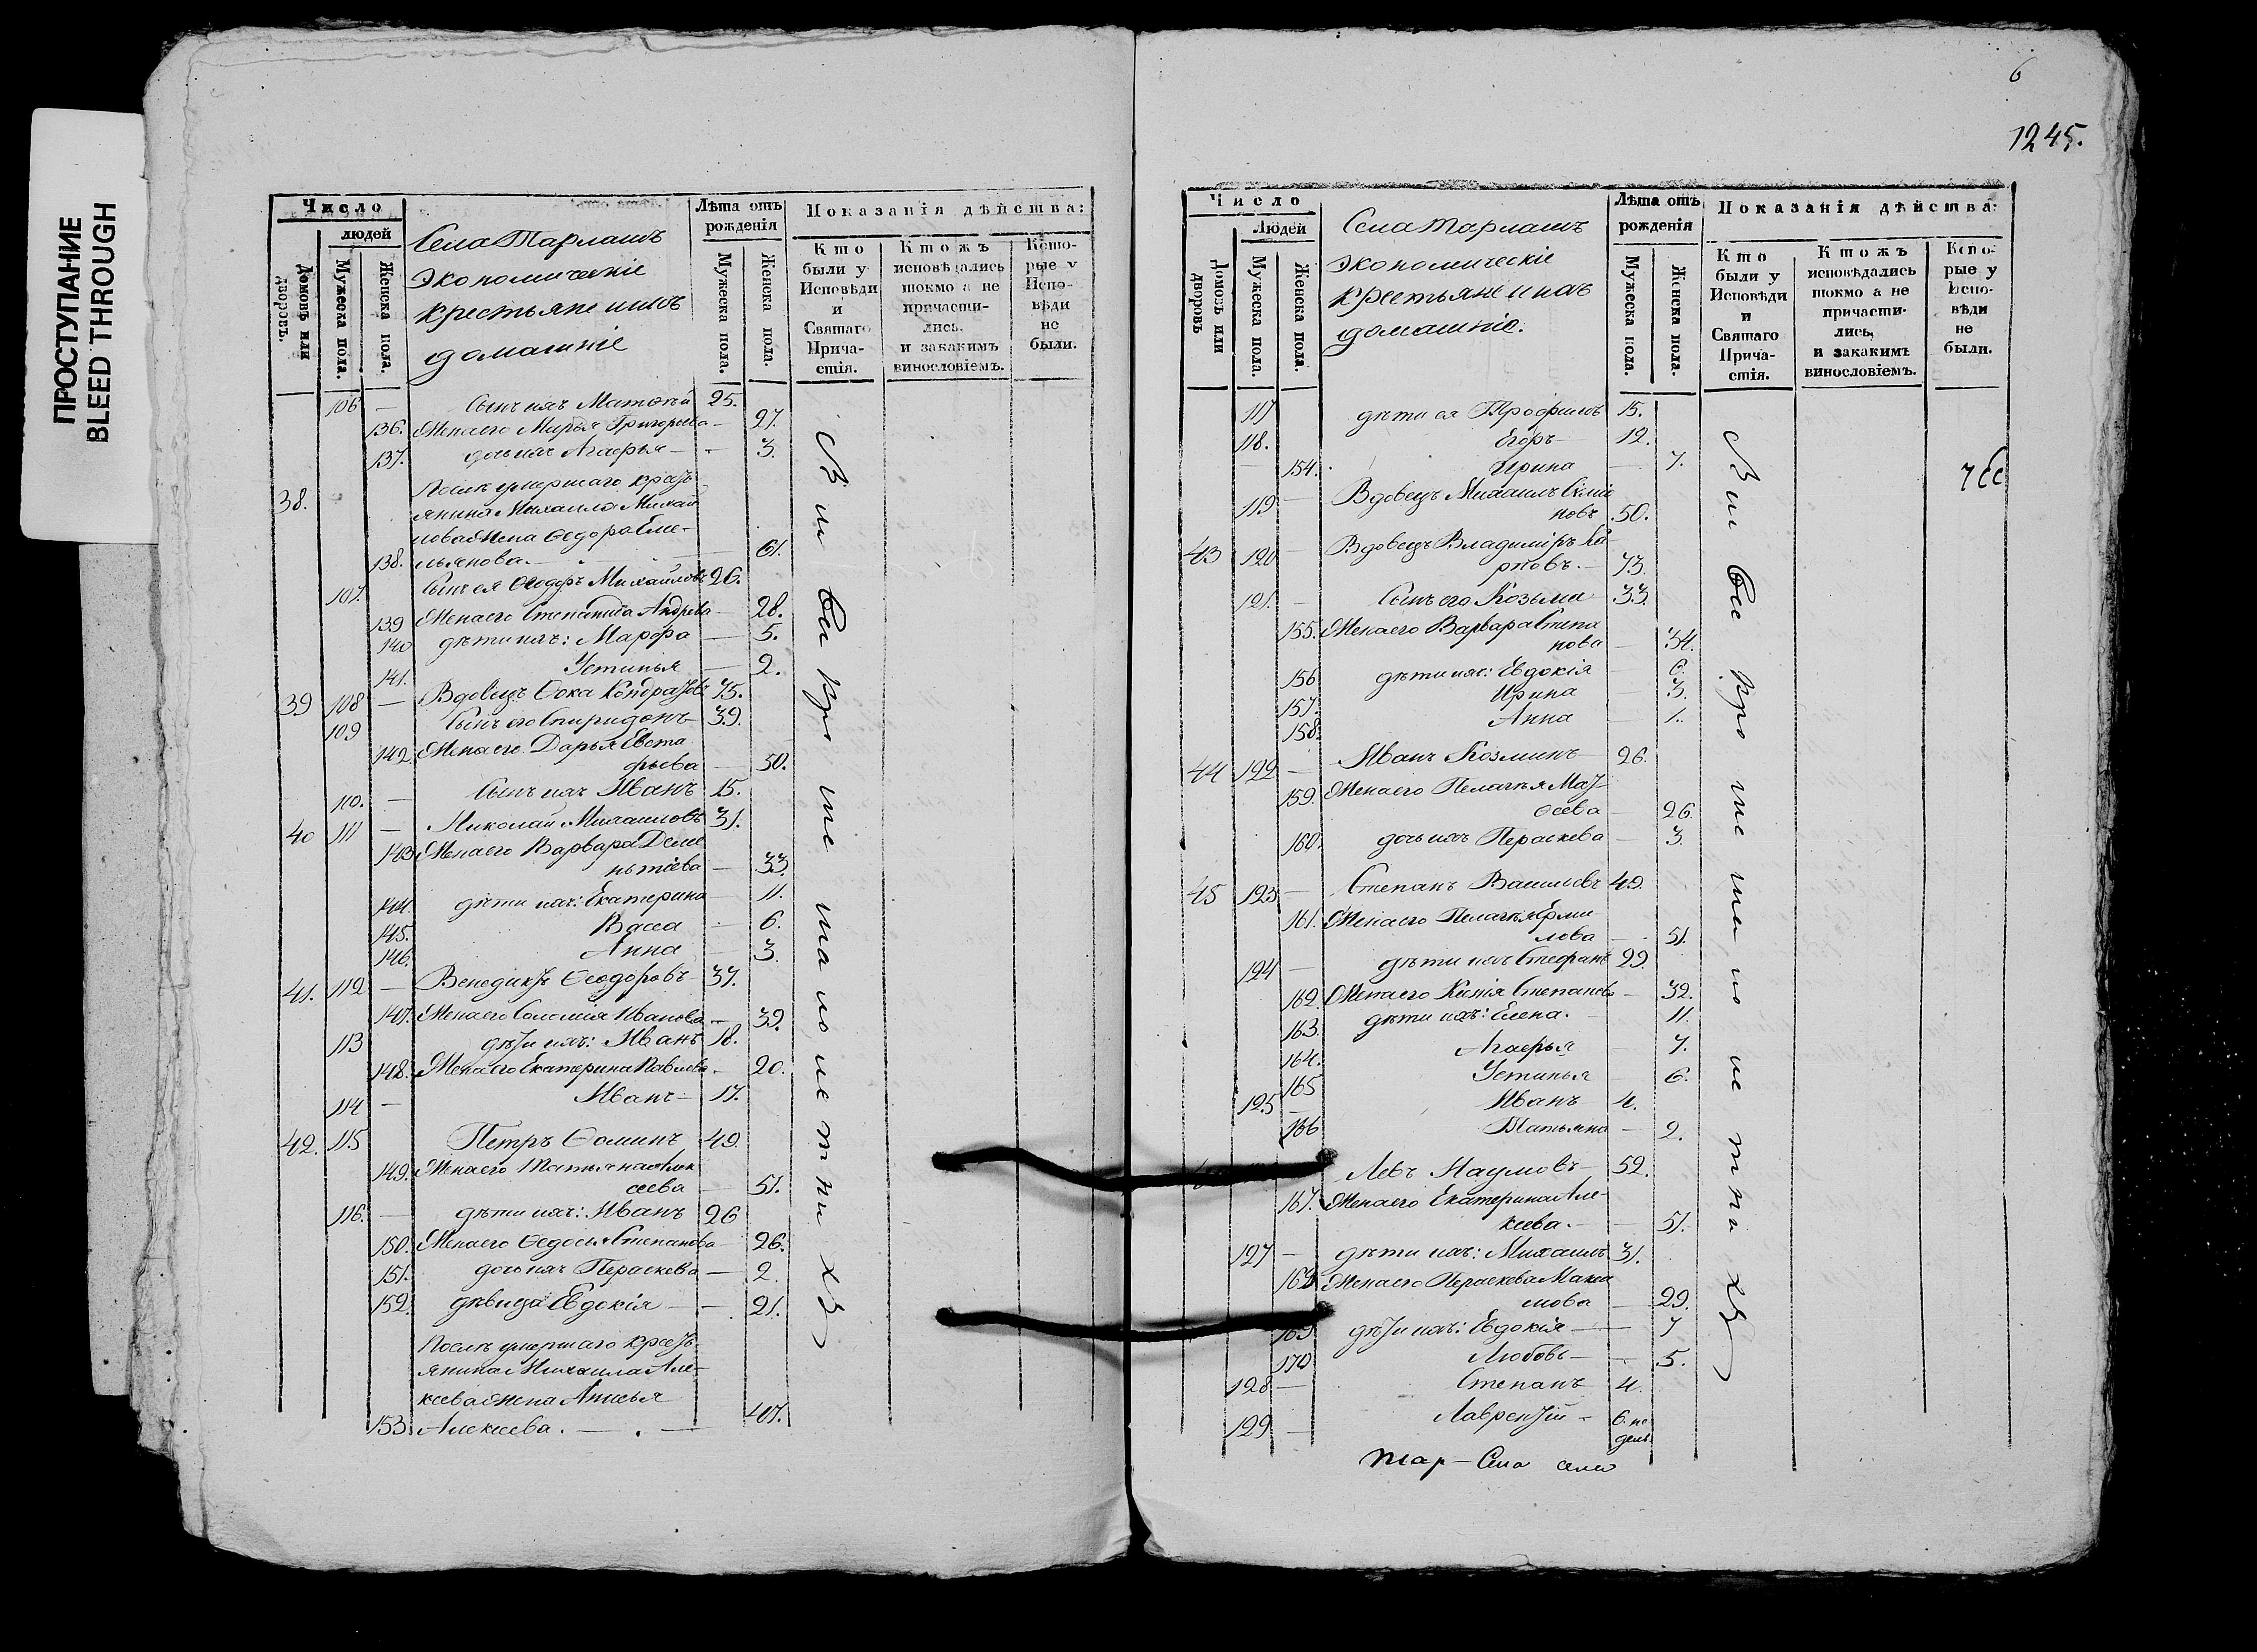 ПРОСТУПАНИЕ
BLEED THROUGH
Число
людей
Домовъ или дворовъ.
Мужеска пола.
Женска пола.
Села Тарлашъ
Экономическіе
крестьяне и ихъ
домашніе
Лѣта отъ рожденія
Мужеска пола.
Женска пола.
Показанія дѣйства:
Кто были у Исповѣди и Святаго Прича-стія.
Ктожъ исповѣдались токмо а не причасти-лись. и закакимъ винословіемъ.
Кото-рые у Испо-вѣди не были.
106 — Сынъ ихъ Матѳей 25.
136. Жена его Марья Григорьева — 27.
137. дочь ихъ Агафья — 3.
38. Послѣ умершаго крест
янина Михаила Михай
лова жена Ѳедора Еме-
138. льянова. — 61.
107. Сынъ ея Ѳеодоръ Михайловъ 26.
139 Жена его Степанида Андрева — 28.
140 дѣти ихъ: Марфа — 5.
141. Устинья — 2.
39 108 — Вдовецъ Ѳока Кондратовъ 75.
109 Сынъ его Спиридонъ 39.
142. Жена его Дарья Евста
фьева — 30.
110. — Сынъ ихъ Иванъ 15.
40 111 — Николай Михаиловъ 31.
143. Жена его Варвара Деме
нтіева — 33.
144. дѣти ихъ: Екатерина 11.
145. Васса — 6.
146. Анна — 3.
41. 112 — Венедиктъ Ѳеодоровъ 37.
147. Жена его Соломія Иванова — 39.
113 дѣти ихъ: Иванъ 18.
148. Жена его Екатерина Павлова — 20.
114 — Иванъ — 17.
42. 115 Петръ Ѳоминъ 49.
149. Жена его Татьяна Алек
сеева — 51.
116. — дѣти ихъ: Иванъ 26
150. Жена его Ѳедосья Степанова 26.
151. дочь ихъ Пераскева — 2.
152. дѣвица Евдокія — 21.
Послѣ умершаго крест
янина Михаила Але-
ксева жена Анисья
153. Алексеева. — 47.
Сіи всѣ кроме малолетнихъ
6
1245.
Число
Людей
Домовъ или дворовъ
Мужеска пола.
Женска пола.
Села Тарлашъ
Экономическіе
крестьяне и ихъ
домашніе.
Лѣта отъ рожденія
Мужеска пола.
Женска пола.
Показанія дѣйства:
Кто были у Исповѣди и Святаго Прича-стія.
Ктожъ исповѣдались токмо а не причасти-лись, и закакимъ винословіемъ.
Кото-рые у Испо-вѣди не были.
117 дѣти ея Трофимъ 15.
118. Егоръ — 12.
154. Ирина — 7.
119 — Вдовецъ Михаилъ Семіо
новъ 50.
43 120 — Вдовецъ Владиміръ Ка
рповъ. — 73.
121. — Сынъ его Козьма 33.
155. Жена его Варвара Степа
нова — 34.
156 дѣти ихъ: Евдокія — 6.
157. Ирина — 3.
158. Анна — 1.
44 122 — Иванъ Козминъ 26.
159. Жена его Пелагѣя Мат
ѳеева — 26.
160. дочь ихъ Пераскева — 3.
45 123 — Степанъ Васильевъ 49.
161. Жена его Пелагѣя Ерми
лова — 51.
124 — дѣти ихъ Стефанъ 29.
162. Жена его Ксенія Степанова — 32.
163. дѣти ихъ: Елена. 11.
164. Агафья 7.
165 Устинья 6.
125 — Иванъ 4.
166 Татьяна — 2.
Левъ Наумовъ — 52.
167. Жена его Екатерина Але-
ксева. — 51.
127 — дѣти ихъ: Михаилъ 31.
168 Жена его Пераскева Макси
мова — 29.
169 дѣти ихъ: Евдокія — 7
170 Любовь — 5.
128 — Степанъ 4.
129 — Лаврентій — 6. не
дель
Сіи всѣ кроме малолетнихъ